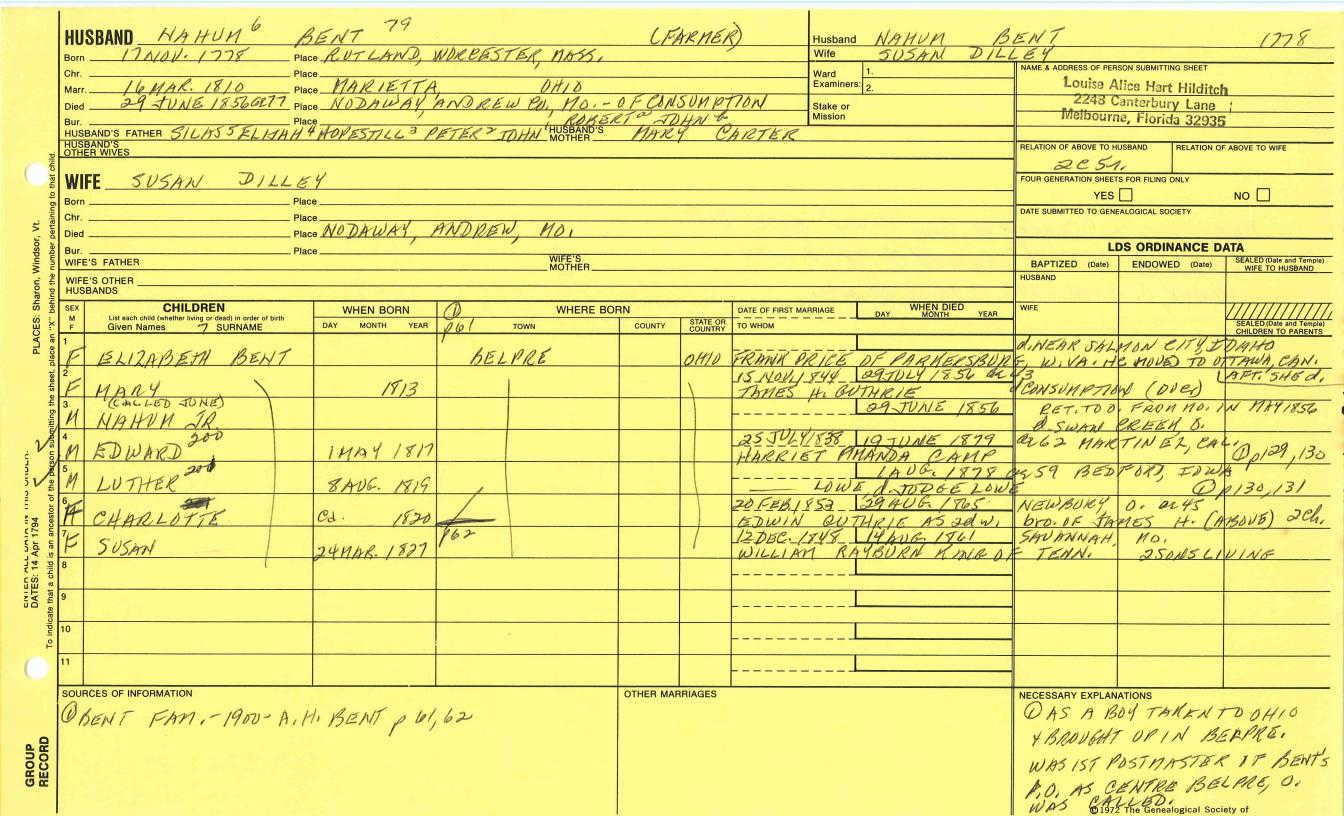 HUSBAND NAHUM 6 BENT 79 (FARMER)
Born 17 NOV. 1778 Place RUTLAND, WORCESTER, MASS.
Chr. Place
Marr. 16 MAR. 1810 Place MARIETTA, OHIO
Died 29 JUNE 1856 Place NODAWAY, ANDREW CO, MO. - OF CONSUMPTION
Bur. Place ROBERT a JOHN b
HUSBAND'S FATHER SILAS 5 ELIJAH 4 HOPESTILL 3 PETER 2 JOHN 1 HUSBAND'S MOTHER MARY CARTER
HUSBAND'S OTHER WIVES
Husband NAHUM BENT 1778
Wife SUSAN DILLEY
Ward Examiners: 1.
2.
Stake or Mission
NAME & ADDRESS OF PERSON SUBMITTING SHEET
Louise Alice Hart Hilditch
2243 Canterbury Lane
Melbourne, Florida 32935
RELATION OF ABOVE TO HUSBAND RELATION OF ABOVE TO WIFE
2C 5r.
FOUR GENERATION SHEETS FOR FILING ONLY
YES NO
DATE SUBMITTED TO GENEALOGICAL SOCIETY
WIFE SUSAN DILLEY
Born Place
Chr. Place
Died Place NODAWAY, ANDREW, MO.
Bur. Place
WIFE'S FATHER WIFE'S MOTHER
WIFE'S OTHER HUSBANDS
LDS ORDINANCE DATA
BAPTIZED (Date) ENDOWED (Date) SEALED (Date and Temple) WIFE TO HUSBAND
HUSBAND
WIFE
SEALED (Date and Temple) CHILDREN TO PARENTS
SEX M F
CHILDREN
List each child (whether living or dead) in order of birth
Given Names 7 SURNAME
WHEN BORN
DAY MONTH YEAR
① p61
WHERE BORN
TOWN COUNTY STATE OR COUNTRY
DATE OF FIRST MARRIAGE
TO WHOM
WHEN DIED
DAY MONTH YEAR
1 d. NEAR SALMON CITY, IDAHO
F ELIZABETH BENT BELPRE OHIO FRANK PRICE OF PARKERSBURG, W. VA. HE MOVED TO OTTAWA, CAN. AFT. SHE d.
2 15 NOV. 1844 29 JULY 1856 ae 43
F MARY 1813 JAMES H. GUTHRIE CONSUMPTION (OVER)
(CALLED JUNE)
3 29 JUNE 1856 RET. TO O. FROM MO. IN MAY 1856
M NAHUM JR. d. SWAN CREEK O.
4 200 25 JULY 1838 19 JUNE 1879 ae 62 MARTINEZ, CAL.
M EDWARD 1 MAY 1817 HARRIET AMANDA CAMP ① p129, 130
5 201 1 AUG. 1878 ae 59 BEDFORD, IOWA
M LUTHER 8 AUG. 1819 LOWE d. JUDGE LOWE ① p130, 131
6 20 FEB. 1852 29 AUG. 1865 NEWBURY O. ae 45
F CHARLOTTE Ca. 1820 EDWIN GUTHRIE AS 2d W. bro. OF JAMES H. (ABOVE) 2ch.
7 p62 12 DEC. 1848 14 AUG. 1861 SAVANNAH, MO.
F SUSAN 24 MAR. 1827 WILLIAM RAYBURN KING OF TENN. 2 SONS LIVING
8
9
10
11
SOURCES OF INFORMATION
① BENT FAM. - 1900 - A.H. BENT p 61, 62
OTHER MARRIAGES
NECESSARY EXPLANATIONS
① AS A BOY TAKEN TO OHIO
& BROUGHT UP IN BELPRE.
WAS 1ST POSTMASTER AT BENT'S
P.O. AS CENTRE BELPRE, O.
WAS CALLED.
©1972 The Genealogical Society of
PLACES: Sharon, Windsor, Vt.
ENTER ALL DATA IN THIS ORDER:
DATES: 14 Apr 1794
To indicate that a child is an ancestor of the person submitting the sheet, place an "X" behind the number pertaining to that child.
GROUP RECORD